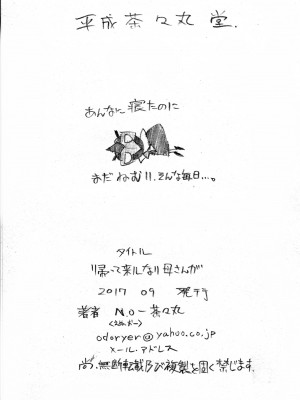 平成茶々丸堂.
あんなに寝たのに
まだねむい!、そんな毎日…。
タイトル
帰って来ない母さんが
2017 09 発行
著者 N.O-茶々丸
odoryer@yahoo.co.jp
メール・アドレス
尚、無断転載及び複製を固く禁じます。